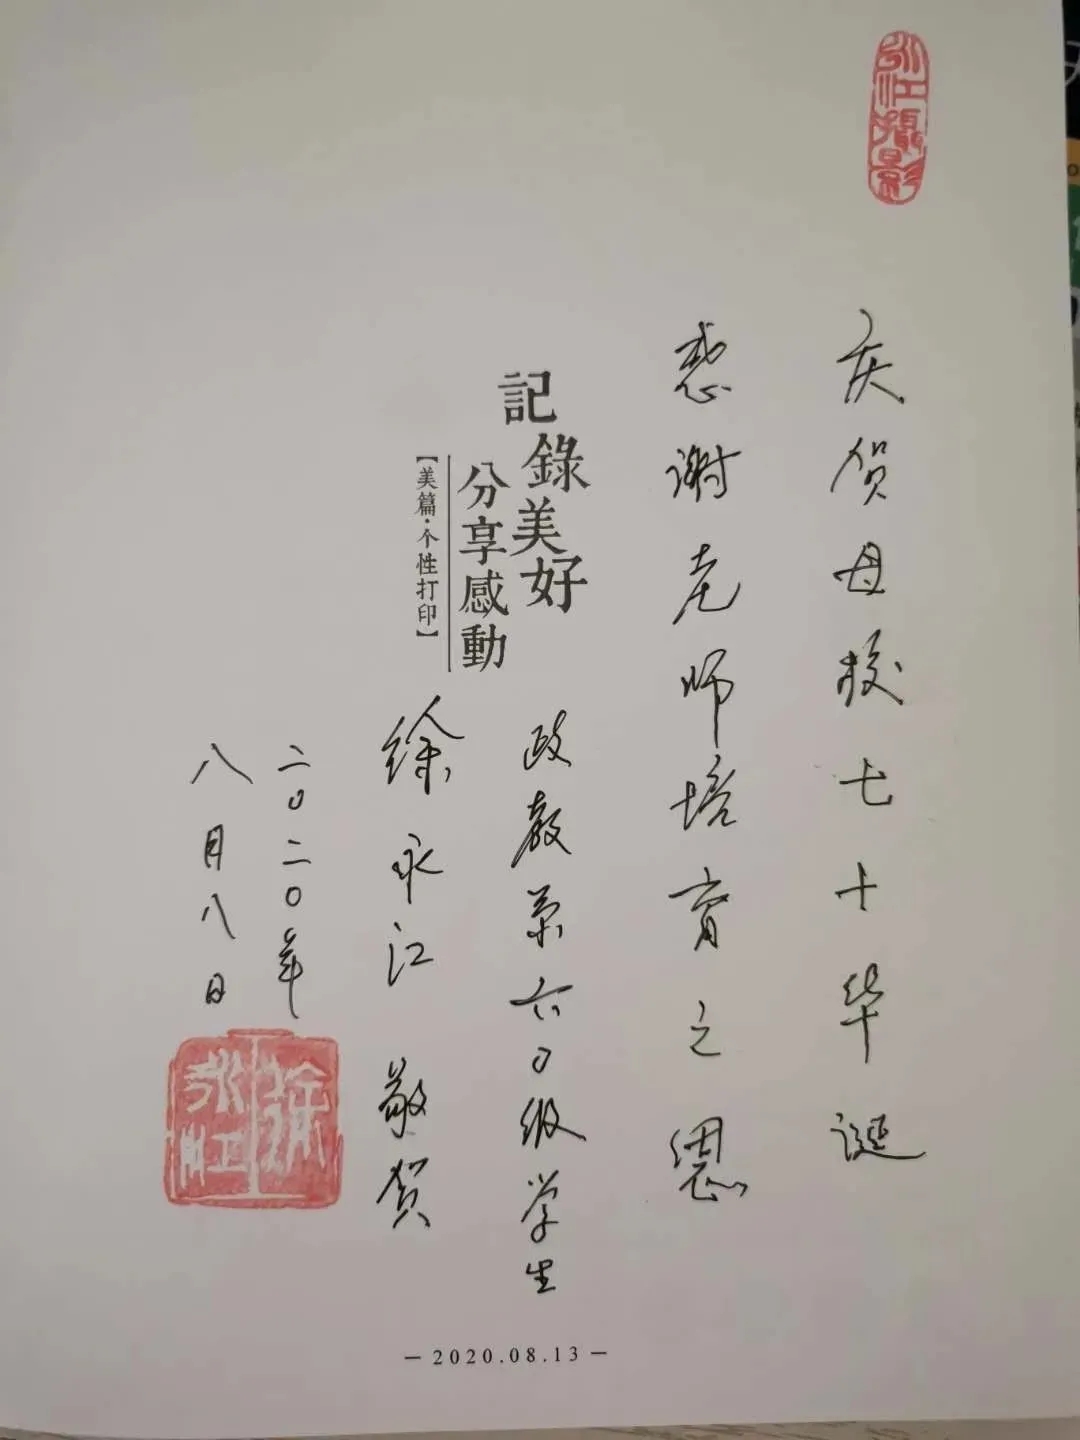 永江摄影
庆贺母校七十华诞
感谢老师培育之恩
記錄美好
分享感動
【美篇·个性打印】
政教系六〇级学生
徐永江 敬贺
二〇二〇年
八月八日
徐永江
2020.08.13